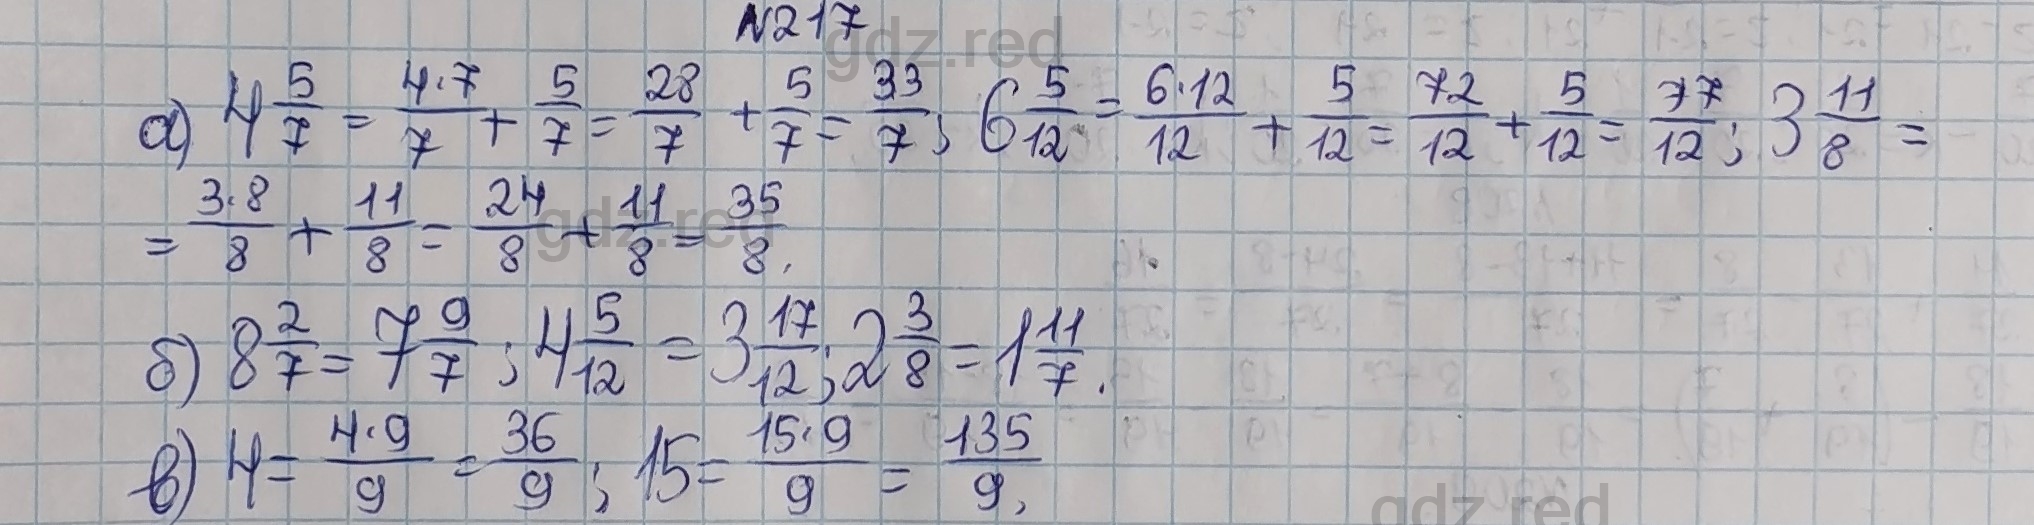 №217
а) 4 5/7 = 4·7/7 + 5/7 = 28/7 + 5/7 = 33/7; 6 5/12 = 6·12/12 + 5/12 = 72/12 + 5/12 = 77/12; 3 11/8 =
= 3·8/8 + 11/8 = 24/8 + 11/8 = 35/8.
б) 8 2/7 = 7 9/7; 4 5/12 = 3 17/12; 2 3/8 = 1 11/7.
в) 4 = 4·9/9 = 36/9; 15 = 15·9/9 = 135/9.
gdz.red
gdz.red
gdz.red